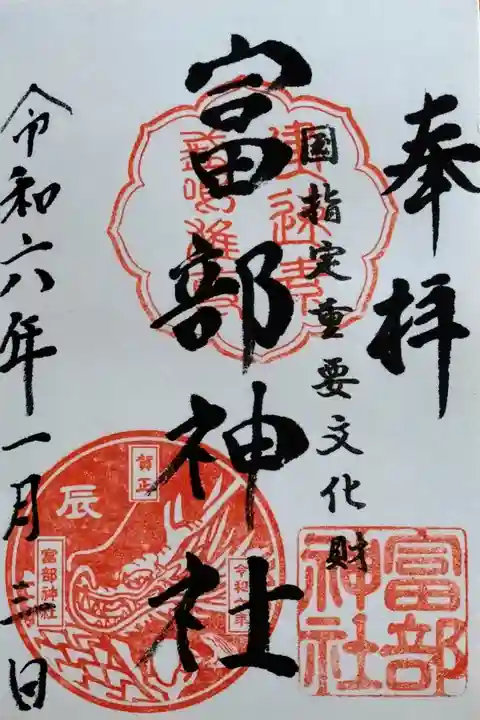 奉拝
国指定重要文化財
富部神社
令和六年一月三日
建速素
賀正
辰
富部神社
富部
神社